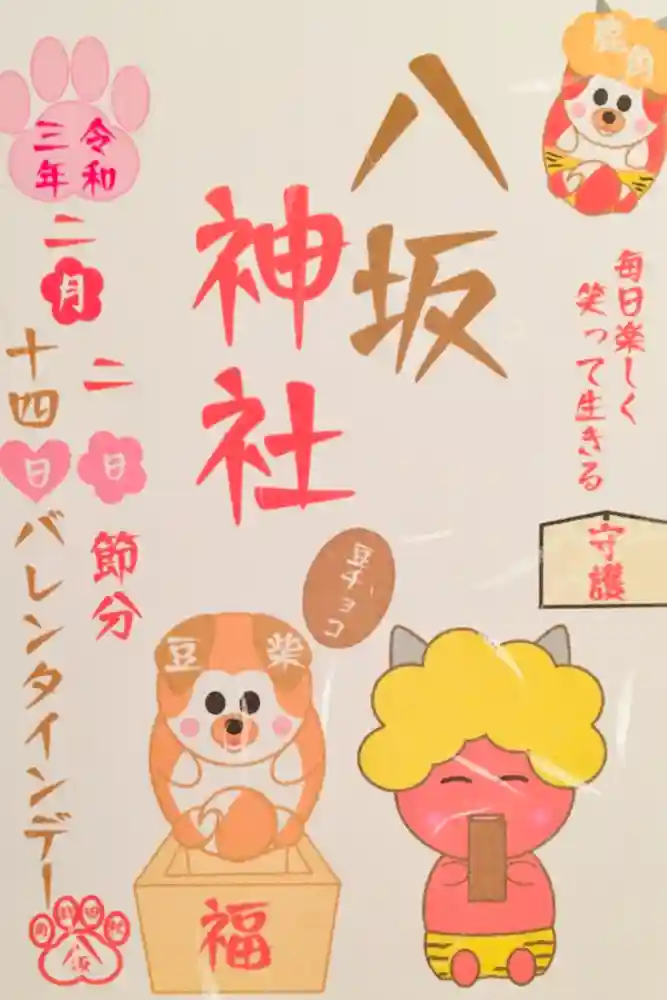 毎日楽しく
笑って生きる
守護
八坂
神社
令和
三年
二月
二日
節分
十四日
バレンタインデー
豆チョコ
豆柴
福
八坂